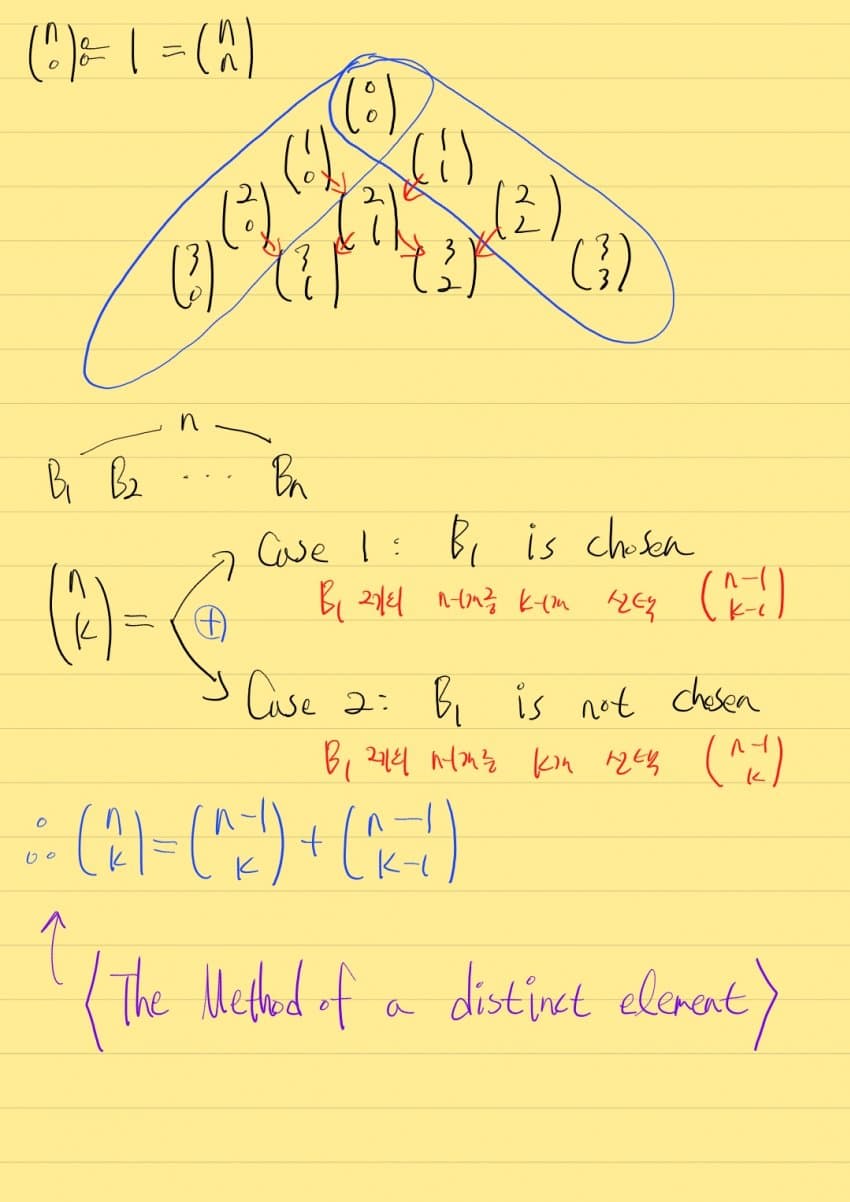 (n 0) := 1 = (n n)
(0 0)
(1 0) (1 1)
(2 0) (2 1) (2 2)
(3 0) (3 1) (3 2) (3 3)
n
B₁ B₂ ··· Bn
Case 1: B₁ is chosen
B₁ 제외 n-1개중 k-1개 선택 (n-1 k-1)
(n k) = ⊕
Case 2: B₁ is not chosen
B₁ 제외 n-1개중 k개 선택 (n-1 k)
∴ (n k) = (n-1 k) + (n-1 k-1)
↑ <The Method of a distinct element>